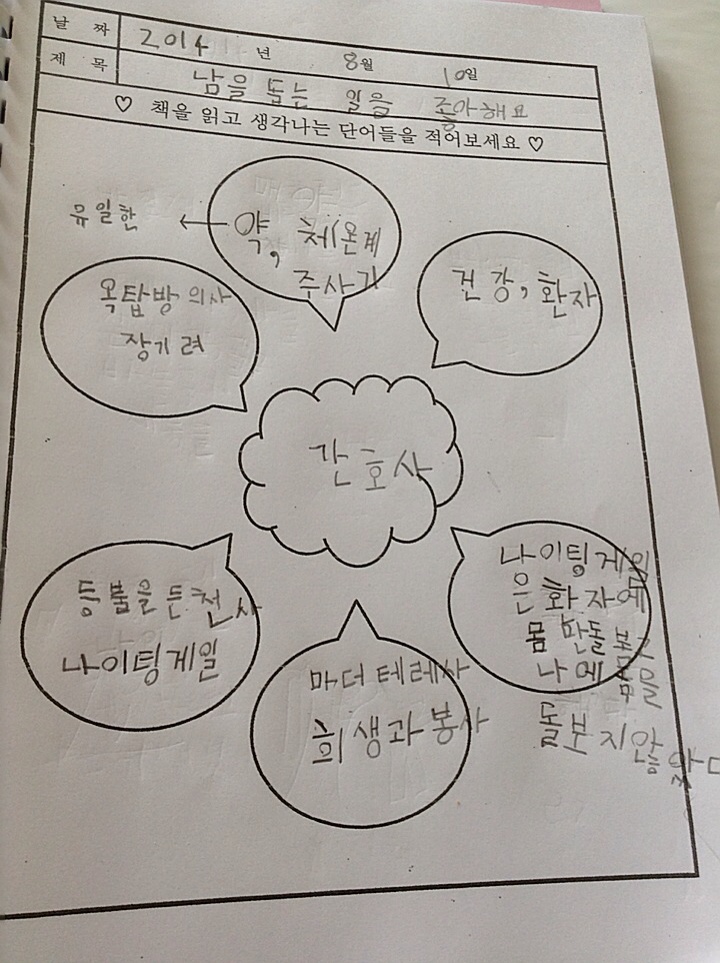 날 짜 2014 년 8월 10일
제 목 남을 돕는 일을 좋아해요
♡ 책을 읽고 생각나는 단어들을 적어보세요 ♡
유일한 ← 약, 체온계
주사기
건강, 환자
옥탑방 의사
장기려
간호사
등불을 든 천사
나이팅게일
마더 테레사
희생과 봉사
나이팅게일
은 환자에
몸 만돌보고
나에 몸을
돌보지 않